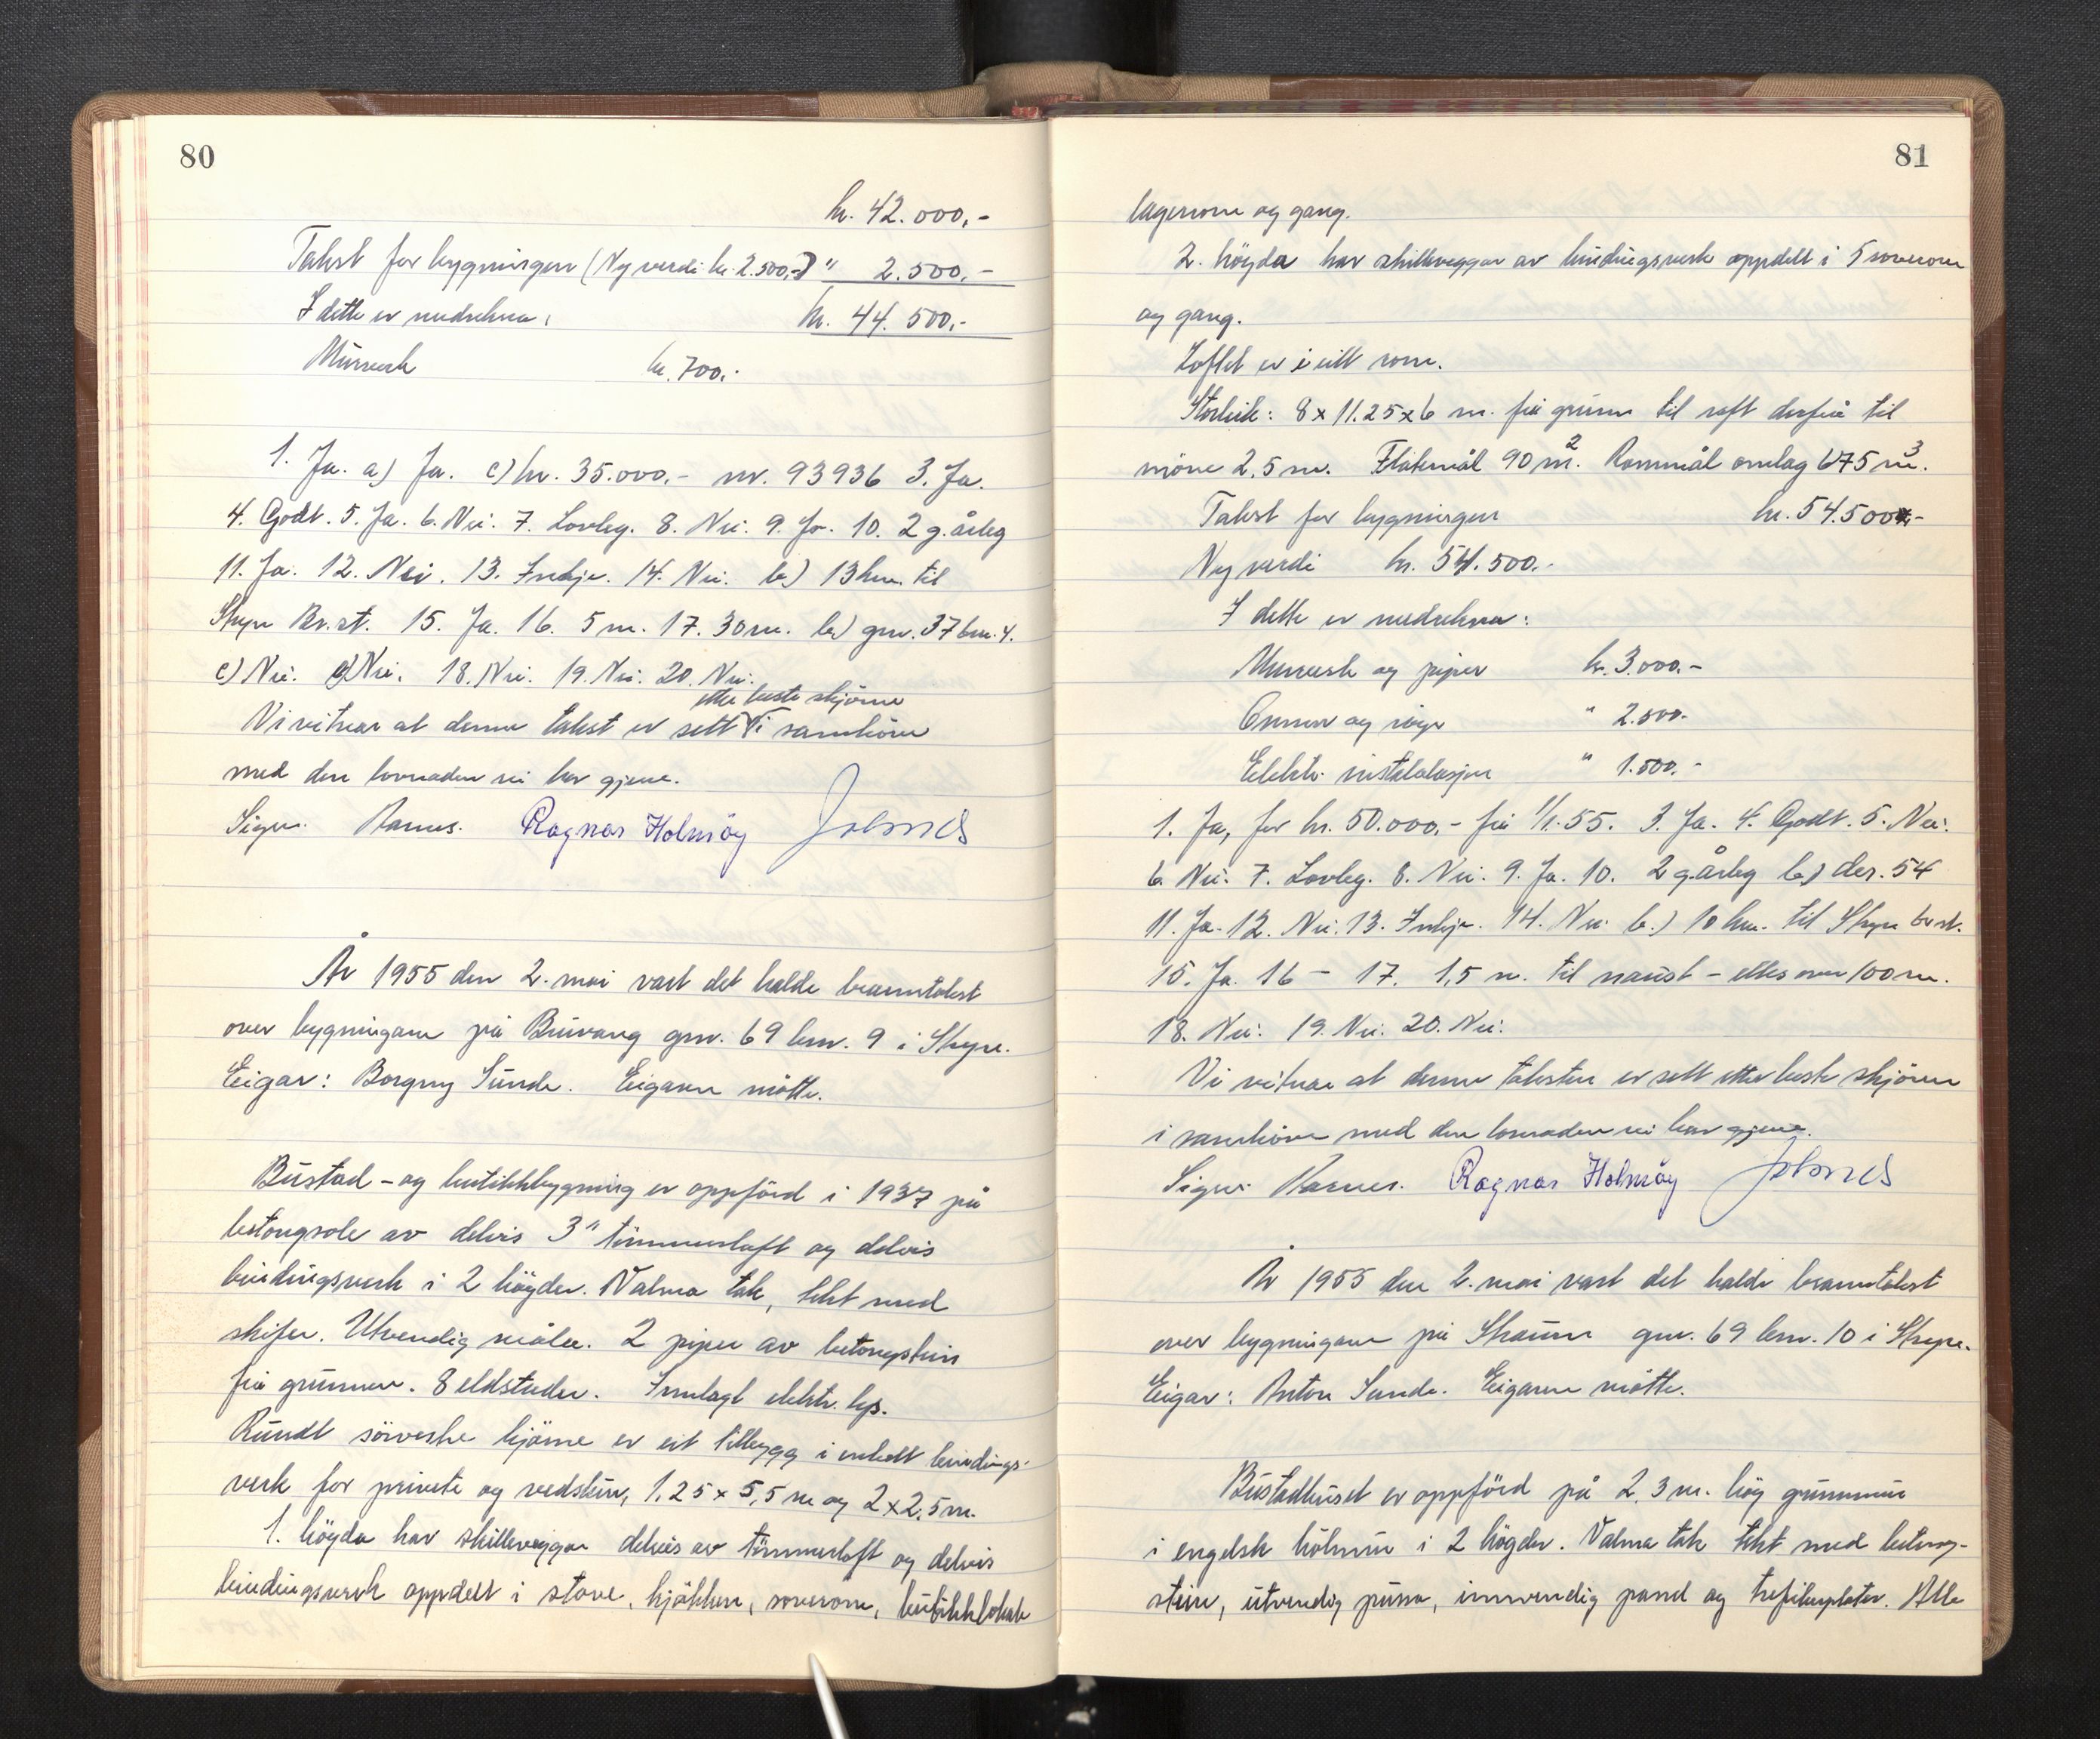 80
kr. 42.000,-
Takst for bygningen (Ny verdi kr. 2.500,-) " 2.500,-
I dette er medrekna: kr. 44.500,-
Murverk kr. 700,-
1. Ja. a) Ja. c) kr. 35.000,- nr. 93936 3. Ja.
4. Godt. 5. Ja. 6. Nei. 7. Lovleg. 8. Nei. 9. Ja. 10. 2 g. årleg
11. Ja. 12. Nei. 13. Inkje. 14. Nei. b) 13 km. til
Stryn Br.st. 15. Ja. 16. 5 m. 17. 30 m. b) gnr. 37 bnr. 4.
c) Nei. d) Nei. 18. Nei. 19. Nei. 20. Nei.
etter beste skjöne
Vi vitnar at denne takst er sett i samhöve
med den lovnaden vi har gjeve.
Sign. Ragnar Holmöy
År 1955 den 2. mai vart det halde branntakst
over bygningane på Buvang gnr. 69 bnr. 9 i Stryn.
Eigar: Borgny Sunde. Eigaren mötte.
Bustad- og butikkbygning er oppförd i 1937 på
betongsole av delvis 3" tömmerlaft og delvis
bindingsverk i 2 högder. Valma tak, tekt med
skifer. Utvendig måla. 2 piper av betongstein
frå grunnen. 8 eldstader. Innlagt elektr. lys.
Rundt sörvestre hjörne er eit tilbygg i enkelt bindings-
verk for privete og vedskur, 1,25 x 5,5 m og 2 x 2,5 m.
1. högda har skilleveggar delvis av tömmerlaft og delvis
bindingsverk oppdelt i stove, kjökken, soverom, butikklokale
81
lagerrom og gang.
2. högda har skilleveggar av bindingsverk oppdelt i 5 soverom
og gang.
Loftet er i eitt rom.
Storleik: 8 x 11.25 x 6 m. frå grunn til raft derfrå til
möne 2,5 m. Flatemål 90 m². Rommål omlag 675 m³.
Takst for bygningen kr. 54.500,-
Ny verdi kr. 54.500.-
I dette er medrekna:
Murverk og piper kr. 3.000.-
Omner og rör " 2.500.-
Elektr. installasjon " 1.500.-
1. Ja, for kr. 50.000,- frå 1/1.55. 3. Ja. 4. Godt. 5. Nei.
6. Nei. 7. Lovleg. 8. Nei. 9. Ja. 10. 2 g. årleg b) des. 54
11. Ja. 12. Nei. 13. Inkje. 14. Nei. b.) 10 km. til Stryn br.st.
15. Ja. 16 - 17. 1,5 m. til naust - elles over 100 m.
18. Nei. 19. Nei. 20. Nei.
Vi vitnar at denne taksten er sett etter beste skjöne
i samhöve med den lovnaden vi har gjeve.
Sign. Ragnar Holmöy
År 1955 den 2. mai vart det halde branntakst
over bygningane på gnr. 69 bnr. 10 i Stryn.
Eigar: Anton Sunde. Eigaren mötte.
Bustadhuset er oppförd på 2.3 m. hög grunnmur
i engelsk holmur i 2 högder. Valma tak tekt med betong-
stein, utvendig pussa, innvendig panel og trefiberplater. Alle